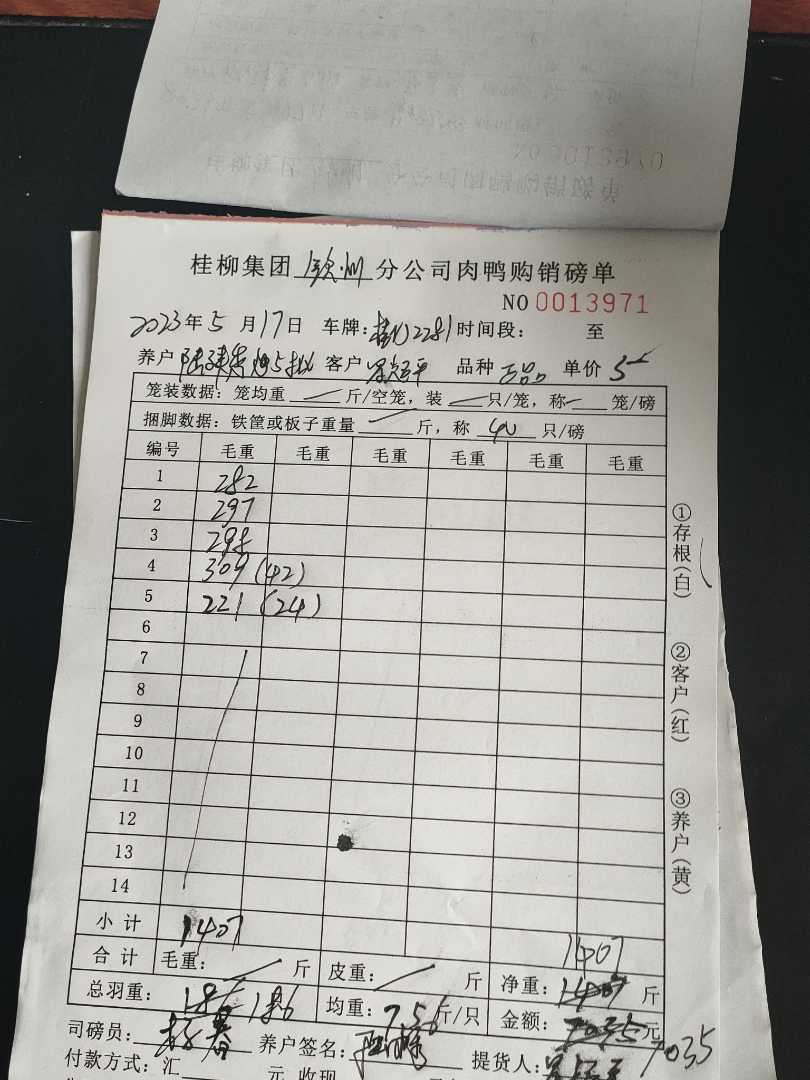 桂柳集团 钦州 分公司肉鸭购销磅单
NO 0013971
2023年5月17日 车牌:桂 2281 时间段: 至
养户 5批 客户 品种 正品 单价 5
笼装数据:笼均重 斤/空笼,装 只/笼,称 笼/磅
捆脚数据:铁筐或板子重量 斤,称 40 只/磅
编号 毛重 毛重 毛重 毛重 毛重 毛重
1 282
2 297
3 298
4 309 (42)
5 221 (24)
6
7
8
9
10
11
12
13
14
小计 1407 1407
合计 毛重: 斤 皮重: 斤 净重: 1407 斤
总羽重: 186 186 均重: 7.56 斤/只 金额: 7035 元
7035
司磅员: 养户签名: 提货人:
付款方式:汇 元 收现
①存根(白)
②客户(红)
③养户(黄)